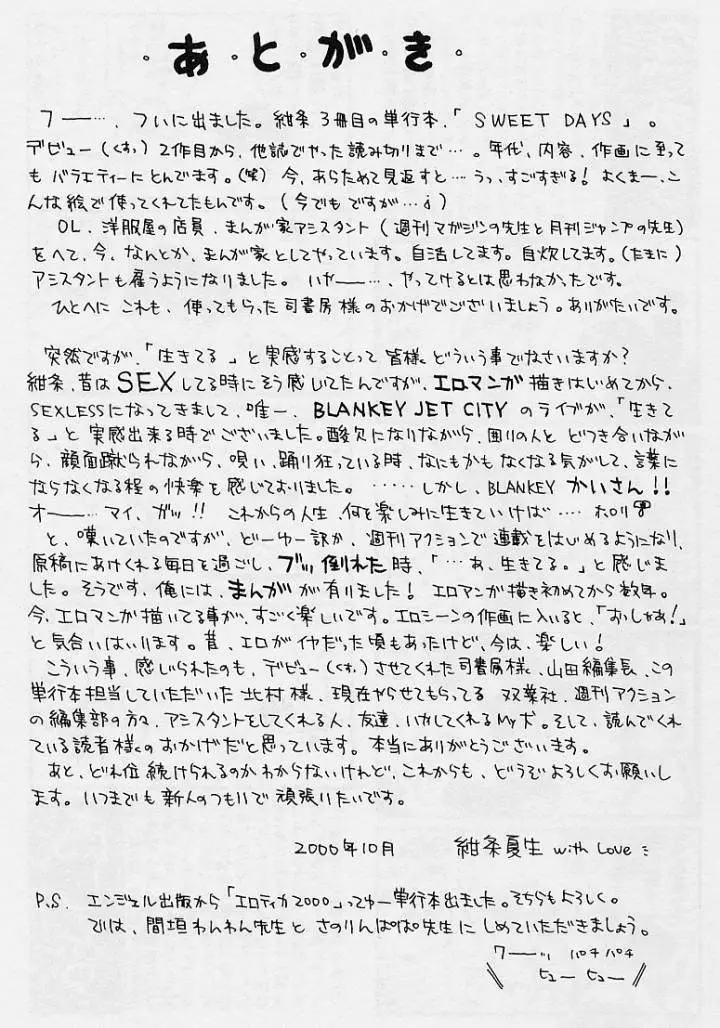 ・あ・と・が・き・
フー…、ついに出ました。紺条3冊目の単行本、「SWEET DAYS」。
デビュー(くすっ)2作目から、他誌でやった読み切りまで…。年代、内容、作画に至って
もバラエティーにとんでます。(笑)今、あらためて見返すと…うっ、すごすぎる!よくまー、こ
んな絵で使ってくれてたもんです。(今でもですが…;)
OL、洋服屋の店員、まんが家アシスタント(週刊マガジンの先生と月刊ジャンプの先生)
をへて、今、なんとか、まんが家としてやっています。自活してます。自炊してます。(たまに)
アシスタントも雇うようになりました。いやー…、やってけるとは思わなかったです。
ひとへにこれも、使ってもらった司書房様のおかげでございましょう。ありがたいです。
突然ですが、「生きてる」と実感することって皆様、どういう事でなさいますか?
紺条、昔はSEXしてる時にそう感じてたんですが、エロマンガ描きはじめてから、
SEXLESSになってきまして、唯一、BLANKEY JET CITYのライブが、「生きて
る」と実感出来る時でございました。酸欠になりながら、囲りの人とどつき合いなが
ら、顔面蹴られながら、唄い、踊り狂っている時、なにもかもなくなる気がして、言葉に
ならなくなる程の快楽を感じておりました。……しかし、BLANKEYかいさん!!
オー…マイ、ガッ!!これからの人生、何を楽しみに生きていけば…ホロリ
と、嘆いていたのですが、どーゆー訳か、週刊アクションで連載をはじめるようになり、
原稿にあけくれる毎日を過ごし、ブッ倒れた時、「…あ、生きてる。」と感じま
した。そうです、俺には、まんがが有りました!エロマンガ描き初めてから数年。
今、エロマンガ描いてる事が、すごく楽しいです。エロシーンの作画に入いると、「おっしゃあ!」
と気合いはいります。昔、エロがイヤだった頃もあったけど、今は、楽しい!
こういう事、感じられたのも、デビュー(くすっ)させてくれた司書房様、山田編集長、この
単行本担当していただいた北村様、現在やらせてもらってる双葉社、週刊アクション
の編集部の方々、アシスタントをしてくれる人、友達、いかしてくれるMy犬。そして、読んでくれ
ている読者様のおかげだと思っています。本当にありがとうございます。
あと、どれ位続けられるのかわからないけれど、これからも、どうぞよろしくお願いし
ます。いつまでも新人のつもりで頑張りたいです。
2000年10月 紺条夏生 with Love
P.S. エンジェル出版から「エロティカ2000」ってゆー単行本出ました。そちらもよろしく。
では、間垣わんわん先生とさのりんぱぱ先生にしめていただきましょう。
ワーッ パチパチ
ヒューヒュー